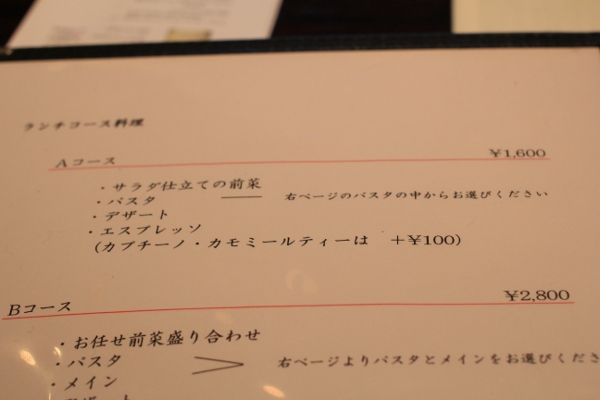 ランチコース料理
Aコース ¥1,600
・サラダ仕立ての前菜
・パスタ 右ページのパスタの中からお選びください
・デザート
・エスプレッソ
(カプチーノ・カモミールティーは +¥100)
Bコース ¥2,800
・お任せ前菜盛り合わせ
・パスタ 右ページよりパスタとメインをお選びくださ
・メイン